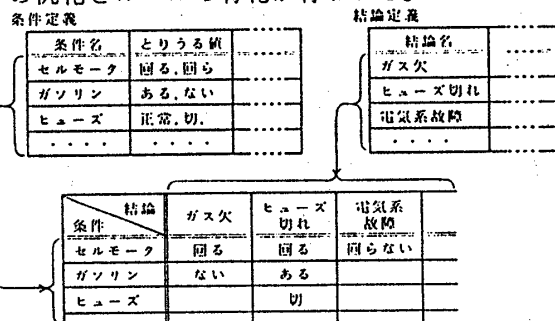 条件定義
結論定義
条件名 とりうる値
セルモータ 回る,回ら
ガソリン ある,ない
ヒューズ 正常,切,
・・・・ ・・・・
結論名
ガス欠
ヒューズ切れ
電気系故障
・・・・
結論
条件
ガス欠 ヒューズ切れ 電気系故障
セルモータ 回る 回る 回らない
ガソリン ない ある
ヒューズ 切